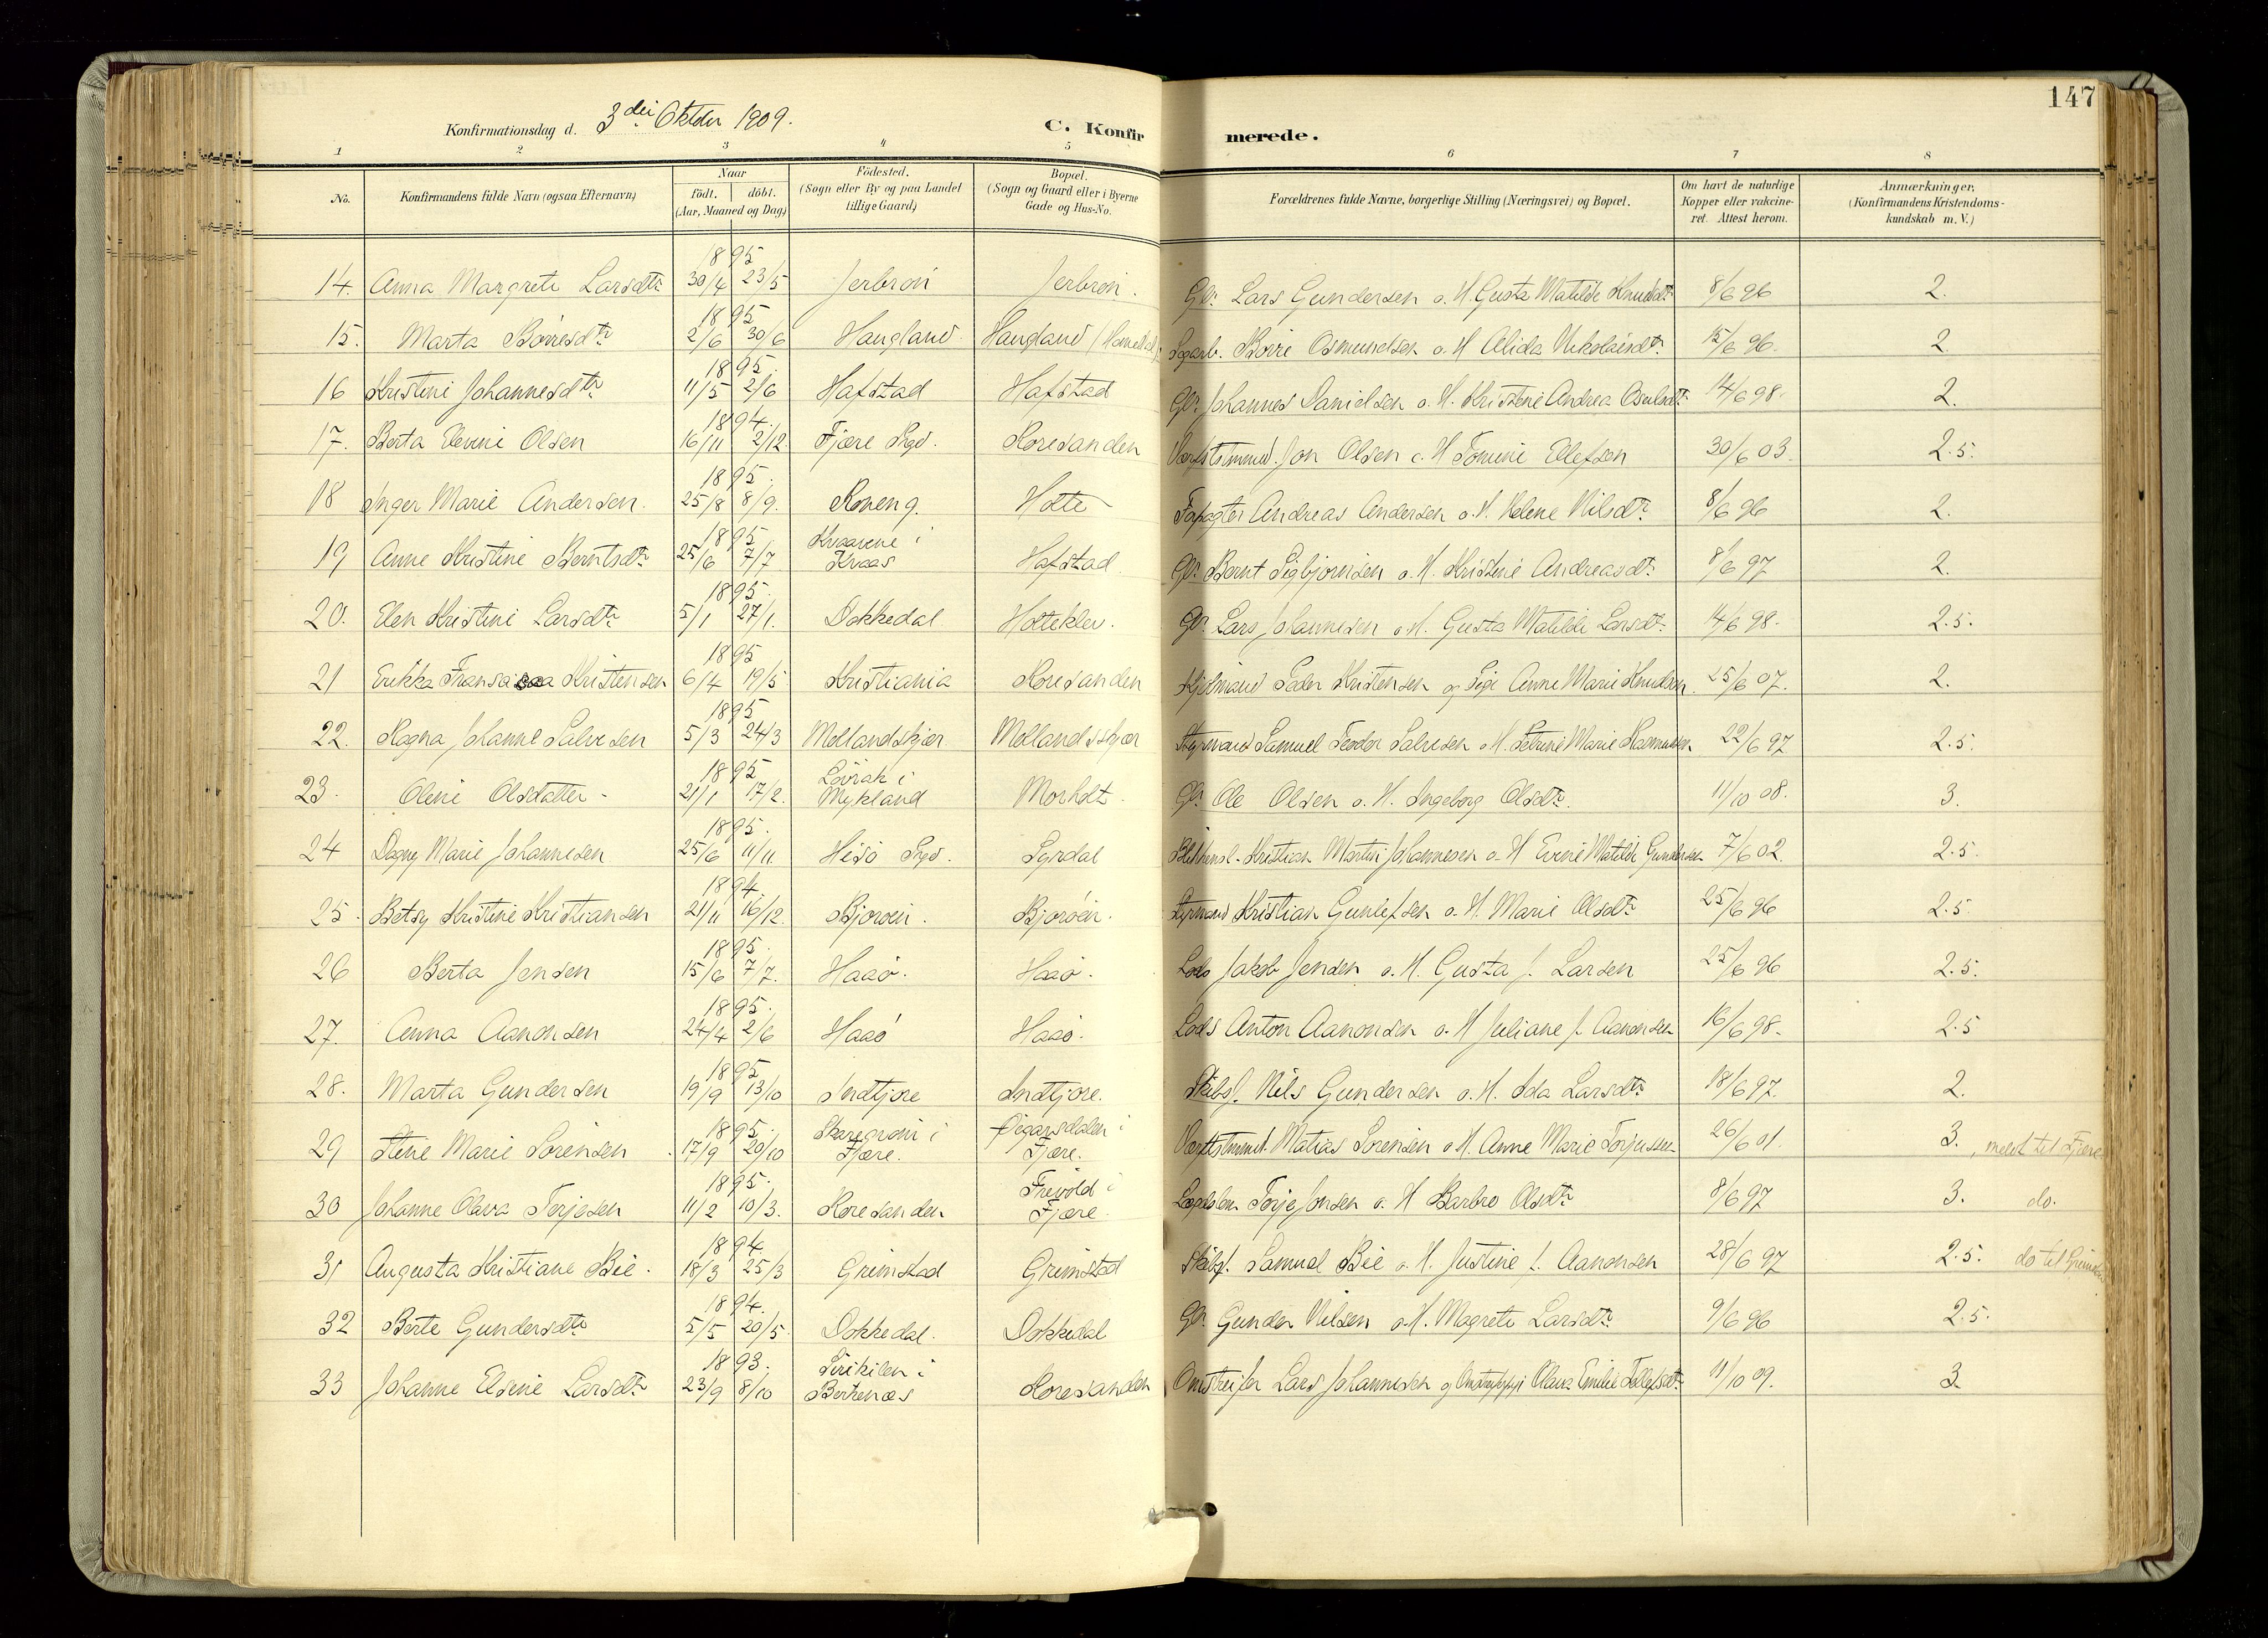 147
Konfirmationsdag d. 3die Oktober 1909.
C. Konfir merede.
1 2 3 4 5 6 7 8
No. Konfirmandens fulde Navn (ogsaa Efternavn) Naar födt. döbt. (Aar, Maaned og Dag) Födested. (Sogn eller By og paa Landet tillige Gaard) Bopæl. (Sogn og Gaard eller i Byerne Gade og Hus-No. Forældrenes fulde Navne, borgerlige Stilling (Næringsvei) og Bopæl. Om havt de naturlige Kopper eller vakcineret. Attest herom. Anmærkninger. (Konfirmandens Kristendomskundskab m. V.)
1895
14. Anna Margrete Larsdtr 30/4 23/5 Jerbroin Jerbroin. Gbr. Lars Gundersen o. H. Gusta Matilde Knudsdtr 8/6 96 2.
1895
15. Marta Börresdtr 2/6 30/6 Haugland Haugland Börre Osmundsen o. H Alida Nikolaisdtr. 15/6 96. 2.
1895.
16 Kristine Johannesdtr. 11/5 2/6 Hafstad Hafstad Gbr. Johannes Danielsen o. H. Kristine Andrea Osuldsdtr. 14/6 98. 2.
1894.
17. Berta Elevine Olsen 16/11 2/12. Fjære Sogd. Roresanden Værftstømmd. Jon Olsen o. H Tomine Ellefsen 30/6 03. 2.5.
1895.
18 Inger Marie Andersen. 25/8 8/9. Roneng. Holte Forpagter Andreas Andersen o. H. Helene Nilsdtr. 8/6 96 2.
1895
19 Anne Kristine Berntsdtr. 25/6 7/7 Kvaavene i Kraas Hafstad Gbr. Bernt Sigbjörnsen o. H. Kristine Andreasdtr. 8/6 97 2.
1895.
20. Elen Kristine Larsdtr. 5/1 27/1. Dokkedal Holteklev. Gbr. Lars Johannesen o. H. Gusta Matilde Larsdtr. 14/6 98. 2.5.
1895
21 Erikka Kristensen 6/4 19/5 Kristiania Roresanden Peder Kristensen og Pige Anne Marie Knudsen. 25/6 07. 2.
1895
22. Ragna Johanne Salvesen 5/3 24/3 Mollandskjær Mollandsskjær Styrmand Samuel Teodor Salvesen o. H. Petrine Marie Rasmussen 22/6 97 2.5.
1895
23. Oline Olsdatter 21/1 17/2. Löviak i Mykland Morholt. Gbr. Ole Olsen o. H. Ingeborg Olsdtr. 11/10 08. 3.
1895.
24 Dagny Marie Johannesen 25/6 11/11. Hisö Sogd. Syrdal Kristian Martin Johannesen o. H Evine Matilde Gundersen 7/6 02. 2.5.
1894.
25. Betsy Kristine Kristiansen 21/11 16/12. Bjoröen. Bjoröen. Styrmand Kristian Gunlefsen o. H. Marie Olsdtr. 25/6 96 2.5.
1895.
26 Berta Jensen 15/6 7/7. Haaö. Haaö. Lods Jakob Jensen o. H. Gusta f. Larsen 25/6 96 2.5.
1895.
27. Anna Aanonsen 24/4 2/6 Haaö Haaö. Lods Anton Aanonsen o. H Juliane f. Aanonsen 16/6 98. 2.5
1895
28. Marta Gundersen 19/9 13/10 Indtjore Indtjore. Skibsf. Nils Gundersen o. H. Ida Larsdtr 18/6 97. 2.
1895.
29 Stine Marie Sörensen 17/9 20/10 Skaregroni i Fjære. i Fjære. Værftstømmd. Matias Sörensen o. H. Anne Marie Torjussen 26/6 01. 3., meldt til Fjære
1895.
30 Johanne Olava Terjesen 11/2 10/3. Roresanden Frivold i Fjære. Terje Jonsen o. H Barbro Olsdtr 8/6 97 3. do.
1894.
31 Augusta Kristiane Bie. 18/3 25/3 Grimstad Grimstad Skibsf. Samuel Bie o. H. Justine f. Aanonsen 28/6 97 2.5. do til Grimstad
1894.
32 Berte Gundersdtr 5/5 20/5. Dokkedal. Dokkedal Gbr. Gunder Nilsen o. H. Magrete Larsdtr. 9/6 96 2.5.
1893.
33 Johanne Elsine Larsdtr 23/9 8/10 i Birkenæs Roresanden Omstreifer Lars Johannesen og Olava Emilie Tellefsdtr. 11/10 09. 3.